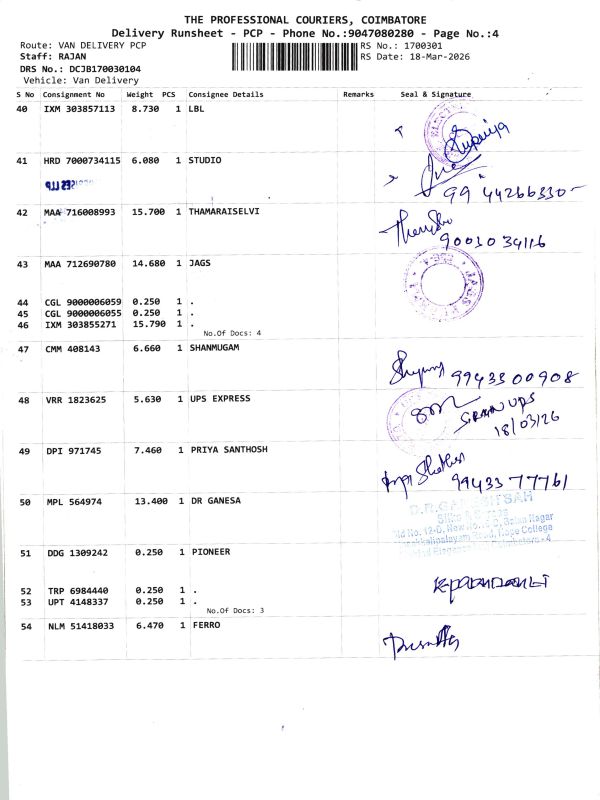 THE PROFESSIONAL COURIERS, COIMBATORE
Delivery Runsheet - PCP - Phone No.:9047080280 - Page No.:4
Route: VAN DELIVERY PCP RS No.: 1700301
Staff: RAJAN RS Date: 18-Mar-2026
DRS No.: DCJB170030104
Vehicle: Van Delivery
S No Consignment No Weight PCS Consignee Details Remarks Seal & Signature
40 IXM 303857113 8.730 1 LBL
41 HRD 7000734115 6.080 1 STUDIO
99 44266330
42 MAA 716008993 15.700 1 THAMARAISELVI
9003034116
43 MAA 712690780 14.680 1 JAGS
44 CGL 9000006059 0.250 1 .
45 CGL 9000006055 0.250 1 .
46 IXM 303855271 15.790 1 .
No.Of Docs: 4
47 CMM 408143 6.660 1 SHANMUGAM
9943300908
48 VRR 1823625 5.630 1 UPS EXPRESS
UPS
18/03/26
49 DPI 971745 7.460 1 PRIYA SANTHOSH
9943377761
50 MPL 564974 13.400 1 DR GANESA
51 DDG 1309242 0.250 1 PIONEER
52 TRP 6984440 0.250 1 .
53 UPT 4148337 0.250 1 .
No.Of Docs: 3
54 NLM 51418033 6.470 1 FERRO